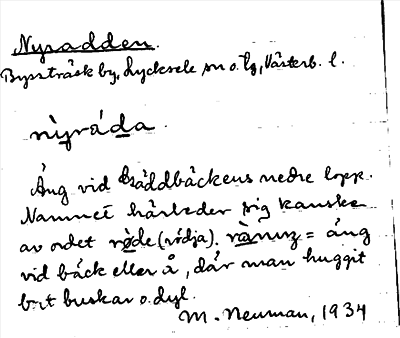 Nyradden.
Byssträsk by, Lycksele sn o. lg, Västerb. l.
nỳráda.
Äng vid Bräddbäckens nedre lopp.
Namnet härleder sig kanske
av ordet røde (rödja). = äng
vid bäck eller å, där man huggit
bort buskar o. dyl.
M. Neuman, 1934